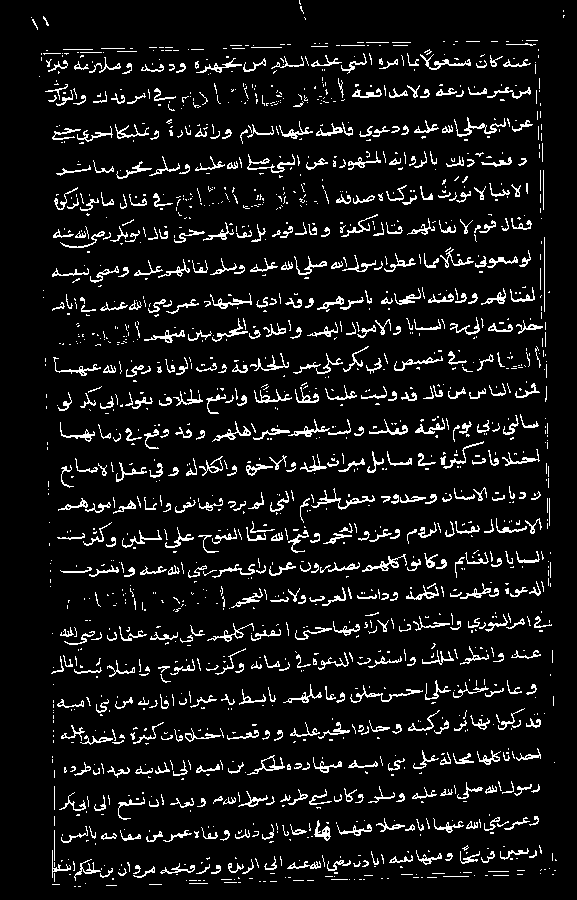 ١١
عنه كان مشغولا بما امره النبي عليه السلام من تجهيزه ودفنه وملازمة قبره
من غير منازعة ولا مدافعة الخلاف السادس في امر فدك والتوارث
عن النبي صلي الله عليه ودعوي فاطمة عليها السلام وراثة تارة وتمليكا اخري حتي
دفعت عن ذلك بالرواية المشهورة عن النبي صلي الله عليه وسلم نحن معاشر
الانبيا لا نورث ما تركناه صدقة الخلاف السابع في قتال مانعي الزكوة
فقال قوم لا نقاتلهم قتال الكفرة وقال قوم بل نقاتلهم حتي قال ابو بكر رضي الله عنه
لو منعوني عقالا مما اعطوا رسول الله صلي الله عليه وسلم لقاتلهم عليه ومضي بنفسه
لقتالهم ووافقته الصحابة باسرهم وقد ادي اجتهاد عمر رضي الله عنه في ايام
خلافته الي رد السبايا والاموال اليهم واطلاق المحبوسين منهم الخلاف
الثامن في تنصيص ابي بكر علي عمر بالخلافة وقت الوفاة رضي الله عنهما
فمن الناس من قال قد وليت علينا فظا غليظا وارتفع الخلاف بقول ابي بكر لو
سالني ربي يوم القيمة فقلت وليت عليهم خير اهلهم وقد وقع في زمانهما
اختلافات كثيرة في مسايل ميراث الجد والاخوة والكلالة وفي عقل الاصابع
وديات الاسنان وحدود بعض الجرايم التي لم يرد فيها نص وانما اهم امورهم
الاشتغال بقتال الروم وغزو العجم وفتح الله تعالي الفتوح علي المسلمين وكثرت
السبايا والغنايم وكانوا كلهم يصدرون عن راي عمر رضي الله عنه وانتشرت
الدعوة وظهرت الكلمة ودانت العرب ولانت العجم الخلاف التاسع
في امر الشوري واختلاف الاراء فيها حتي اتفقوا كلهم علي بيعة عثمان رضي الله
عنه وانتظم الملك واستقرت الدعوة في زمانه وكثرت الفتوح وامتلا بيت المال
وعاشر الخلق علي احسن خلق وعاملهم بابسط يد غير ان اقاربه من بني امية
قد ركبوا نهابر فركبته وجاروا فجير عليه ووقعت اختلافات كثيرة واخذوا عليه
احداثا كلها محالة علي بني امية منها رده الحكم بن امية الي المدينة بعد ان طرده
رسول الله صلي الله عليه وسلم وكان يسمي طريد رسول الله وبعد ان تشفع الي ابي بكر
وعمر رضي الله عنهما ايام خلافتهما فما اجابا الي ذلك ونفاه عمر من مقامه باليمن
اربعين فرسخا ومنها نفيه ابا ذر رضي الله عنه الي الربذة وتزويجه مروان بن الحكم